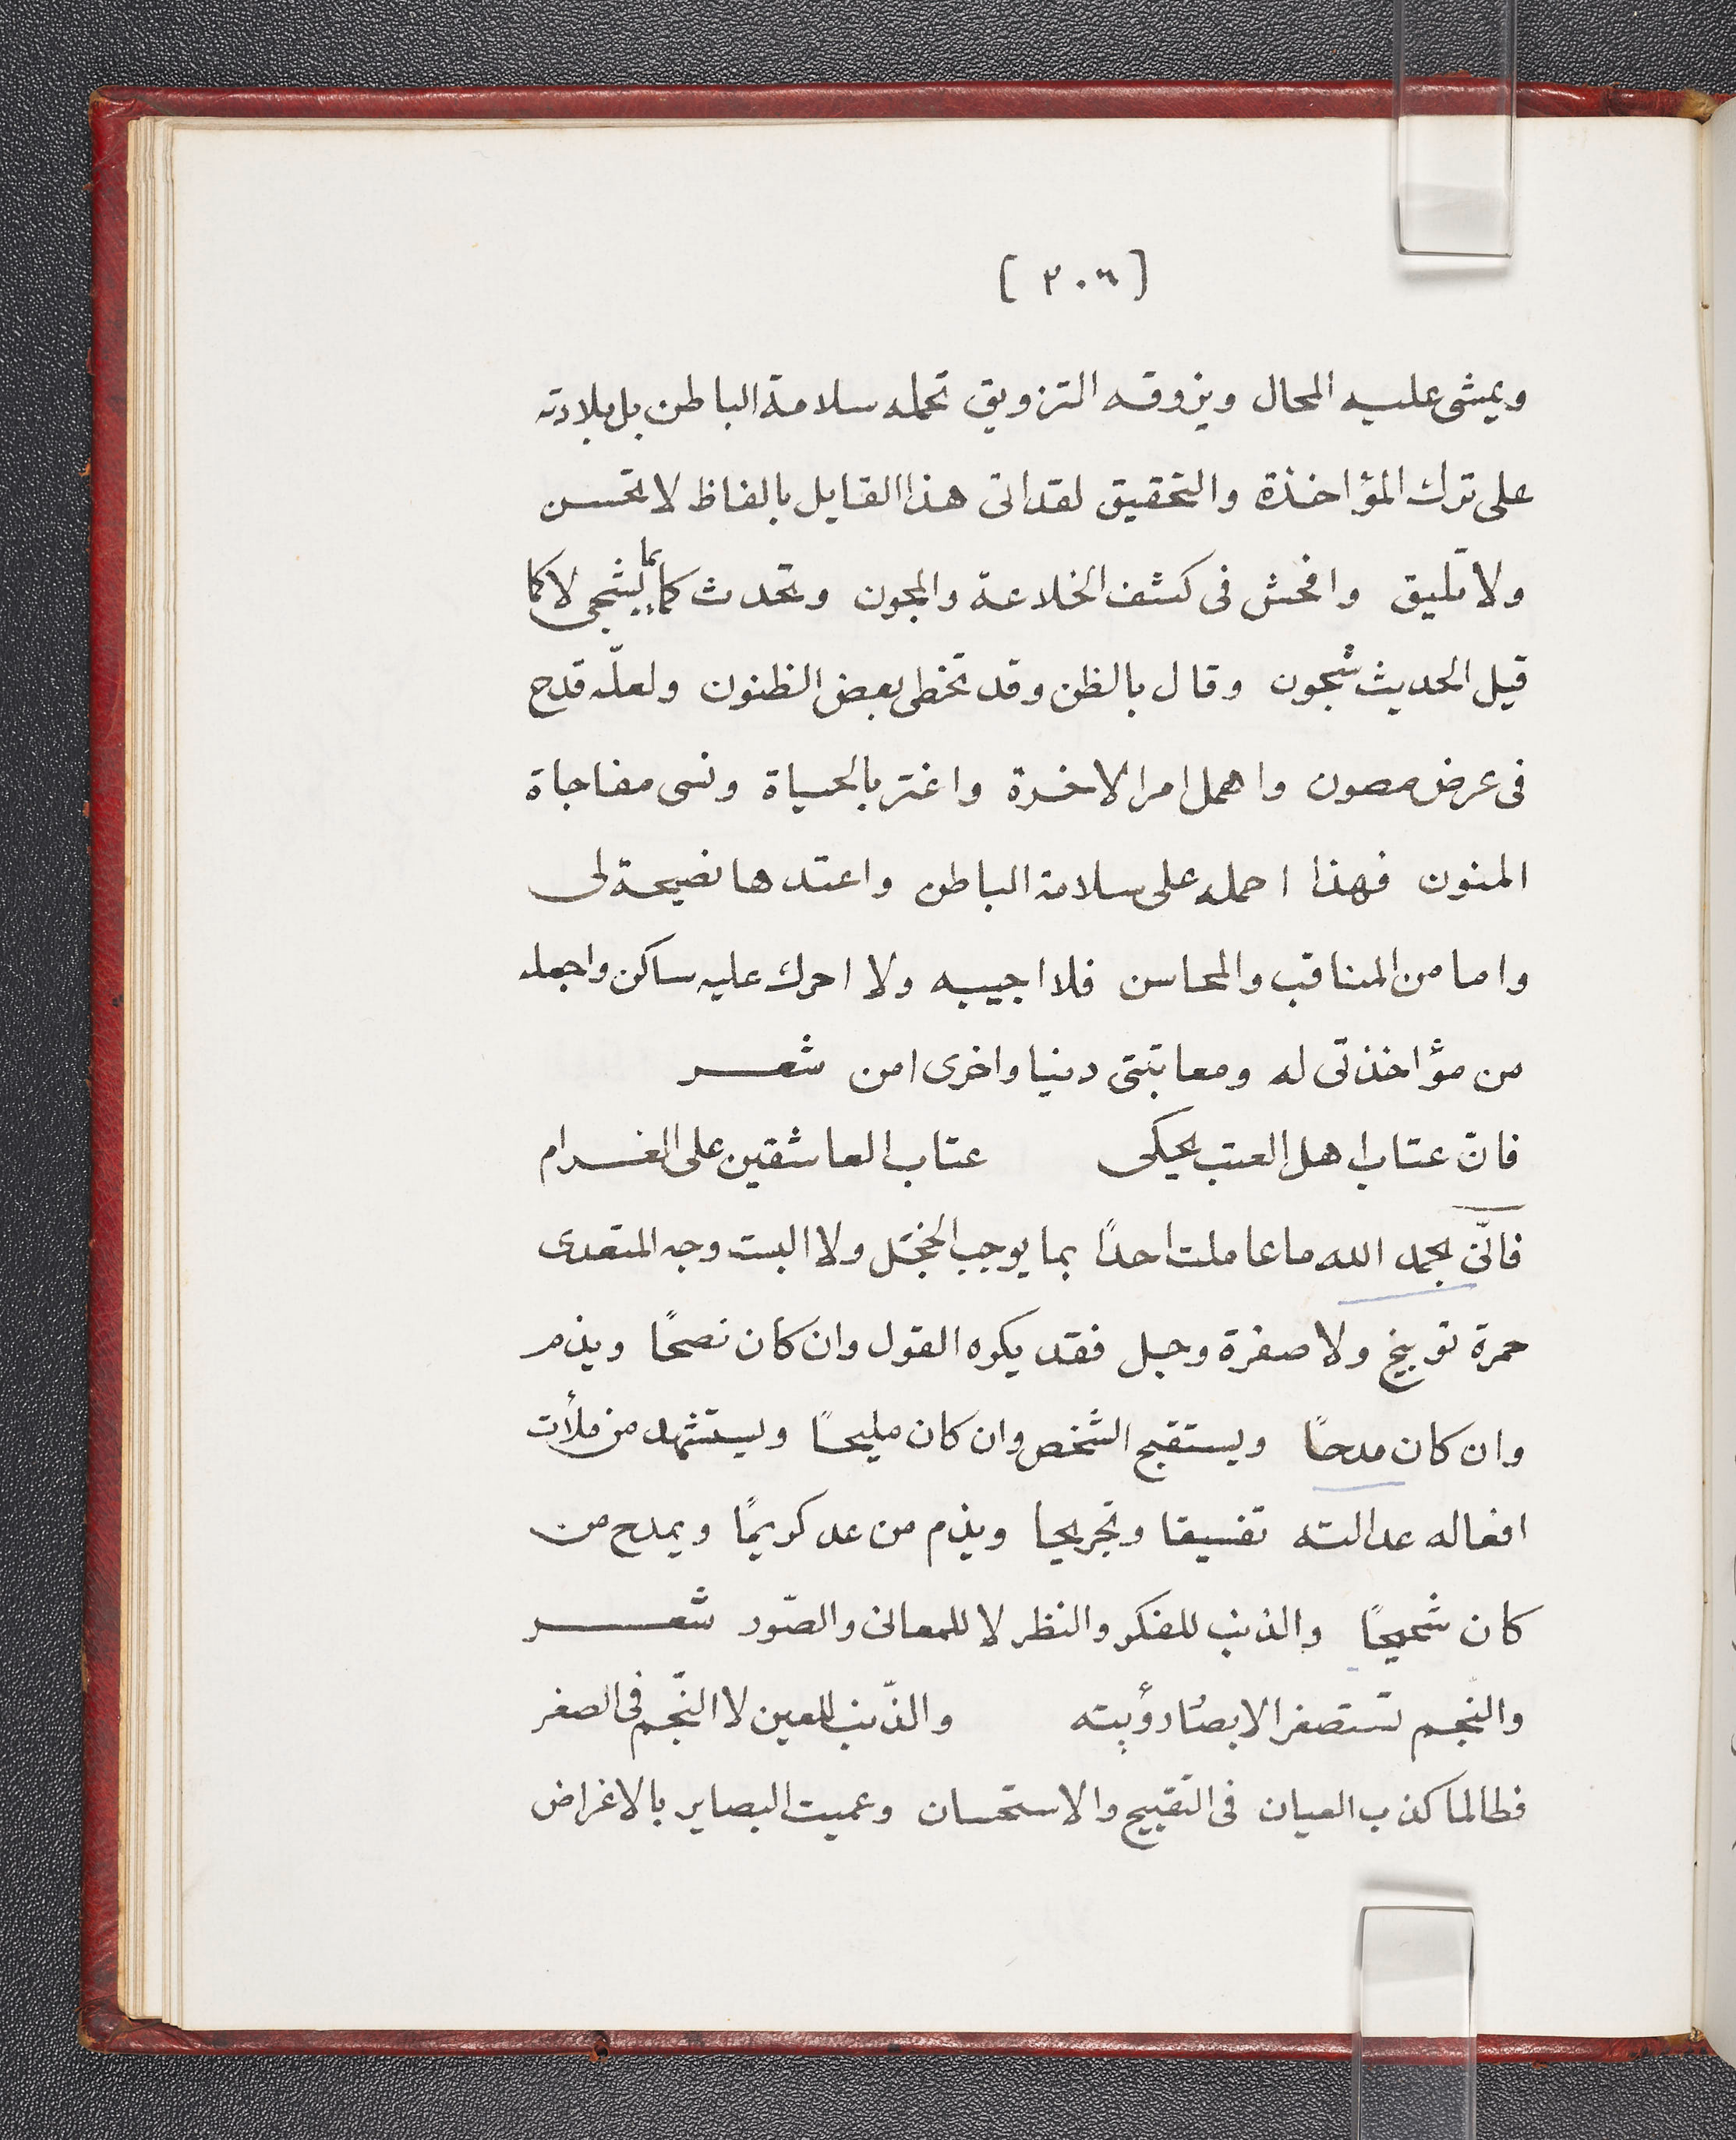 [ ٢٠٦ ]
ويمشى عليه المحال ويزوقه التزويق تحمله سلامة الباطن بل بلادته
على ترك المؤاخذة والتحقيق لقد اتى هذا القايل بالفاظ لا تحسن
ولا تليق وافحش فى كشف الخلاعة والمجون وتحدث كما بما يشجى لا كما
قيل الحديث شجون وقال بالظن وقد تخطى بعض الظنون ولعلّه قدح
فى عرض مصون واهمل امر الاخرة واغتر بالحياة ونسى مفاجاة
المنون فهذا احمله على سلامة الباطن واعتدها نصيحة لى
واما من المناقب والمحاسن فلا اجيبه ولا احرك عليه ساكن واجعله
من مؤاخذتى له ومعاتبتى دنيا واخرى امن شعر
فانّ عتاب اهل العتب يحكى عتاب العاشقين على الغرام
فانّى بحمد الله ما عاملت احدًا بما يوجب الخجل ولا البست وجه المتعدى
حمرة توبيخ ولا صفرة وجل فقد يكره القول وان كان نصحًا ويذم
وان كان مدحًا ويستقبح الشخص وان كان مليحًا ويستشهد من ملأت
افعاله عدالته تفسيقا وتجريحا ويذم من عد كريمًا ويمدح من
كان شحيحًا والذنب للفكر والنظر لا للمعانى والصّور شعر
والنّجم تستصغر الابصار رؤيته والذّنب للعين لا النّجم فى الصغر
فطالما كذب العيان فى التقبيح والاستحسان وعميت البصاير بالاغراض